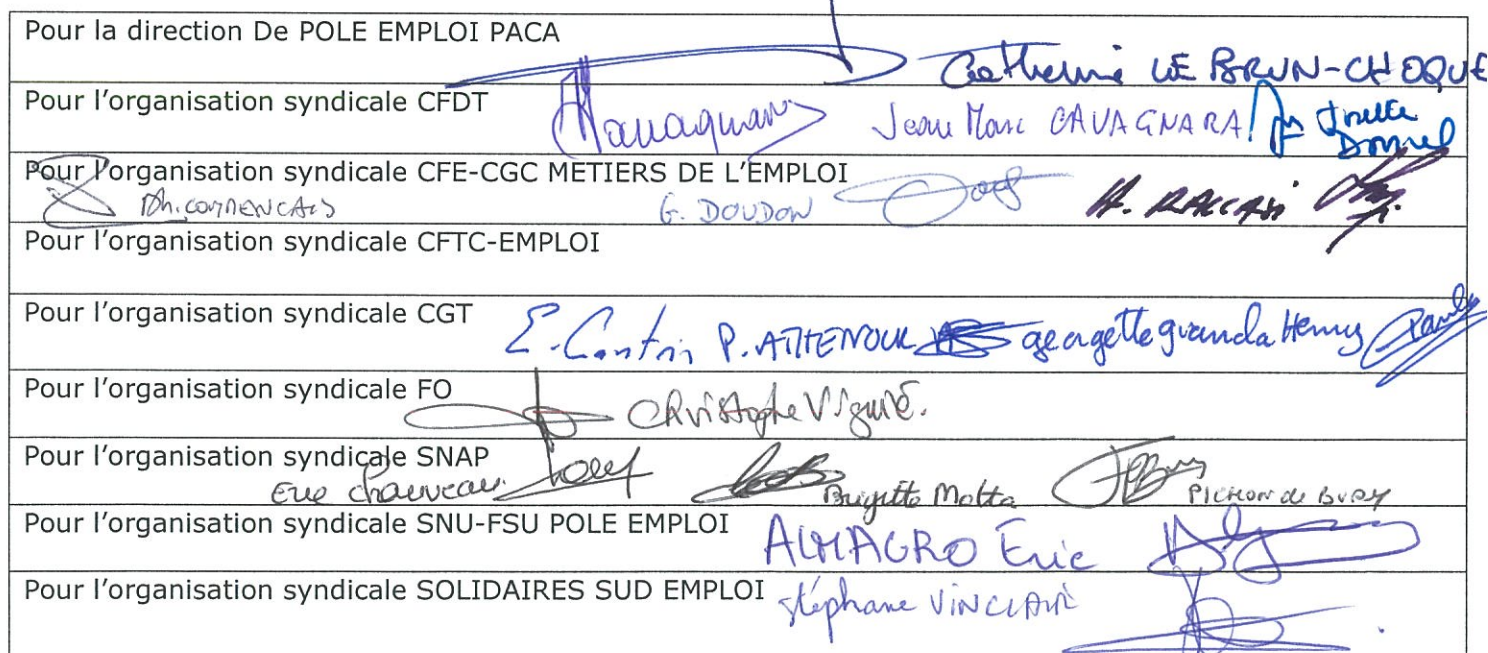 Pour la direction De POLE EMPLOI PACA
Catherine LE BRUN-CHOQUE
Pour l'organisation syndicale CFDT
Jean Marc CAVAGNARA
Pour l'organisation syndicale CFE-CGC METIERS DE L'EMPLOI
G. DOUDON
Pour l'organisation syndicale CFTC-EMPLOI
Pour l'organisation syndicale CGT
E. Contin P. georgette granda Henry
Pour l'organisation syndicale FO
Christophe Viguié.
Pour l'organisation syndicale SNAP
chauveau Brigitte Motta PICHON de BURY
Pour l'organisation syndicale SNU-FSU POLE EMPLOI
ALMAGRO Eric
Pour l'organisation syndicale SOLIDAIRES SUD EMPLOI
Stéphane VINCLAIRE